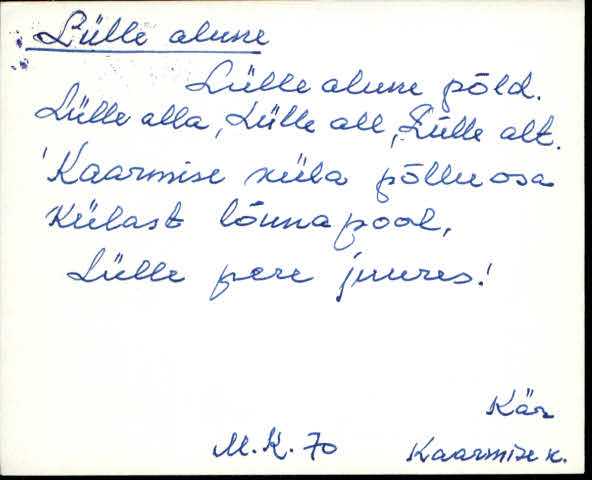 Lülle alune
Lülle alune põld.
Lülle alla, Lülle all, Lülle alt.
Kaarmise küla põllu osa
külast lõuna pool,
Lülle pere juures!
Kär
M.K. 70 Kaarmise k.